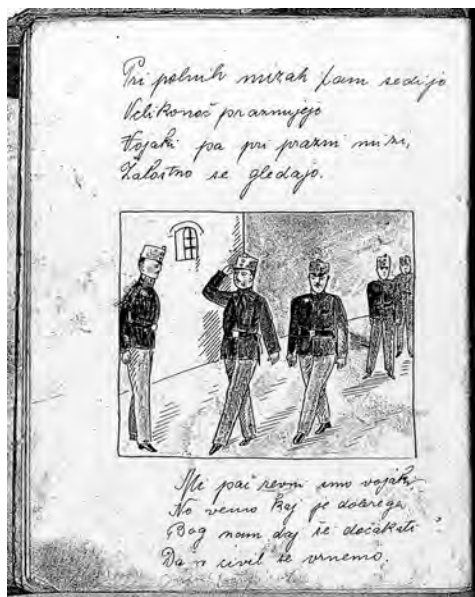 Pri polnih mizah tam sedijo
Velikonoč praznujejo
Vojaki pa pri prazni mizi,
Žalostno se gledajo.
Mi pač revni smo vojaki
No vemo kaj je dobrega
Bog nam daj še dočakati
Da v civil se vrnemo.